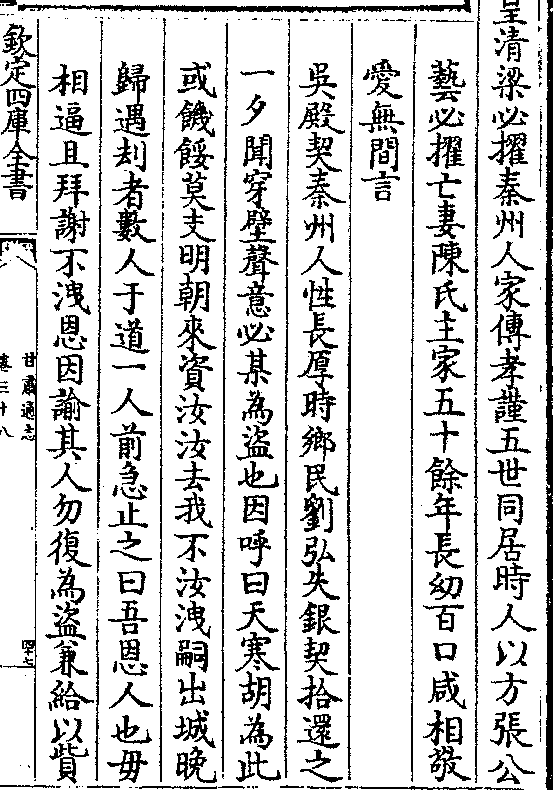 呈清梁必擢秦州人家傳孝謹五世同居時人以方張公
藝必擢亡妻陳氏主家五十餘年長幼百口咸相敬
愛無間言
吳殿契秦州人性長厚時鄉民劉弘失銀契拾還之
一夕聞穿壁聲意必某為盜也因呼曰天寒胡為此
或饑餒莫支明朝來資汝汝去我不汝洩嗣出城晚
歸遇刦者數人于道一人前急止之曰吾恩人也毋
相逼且拜謝不洩恩因諭其人勿復為盜兼給以貲
欽定四庫全書
甘肅通志
卷三十八
四十七